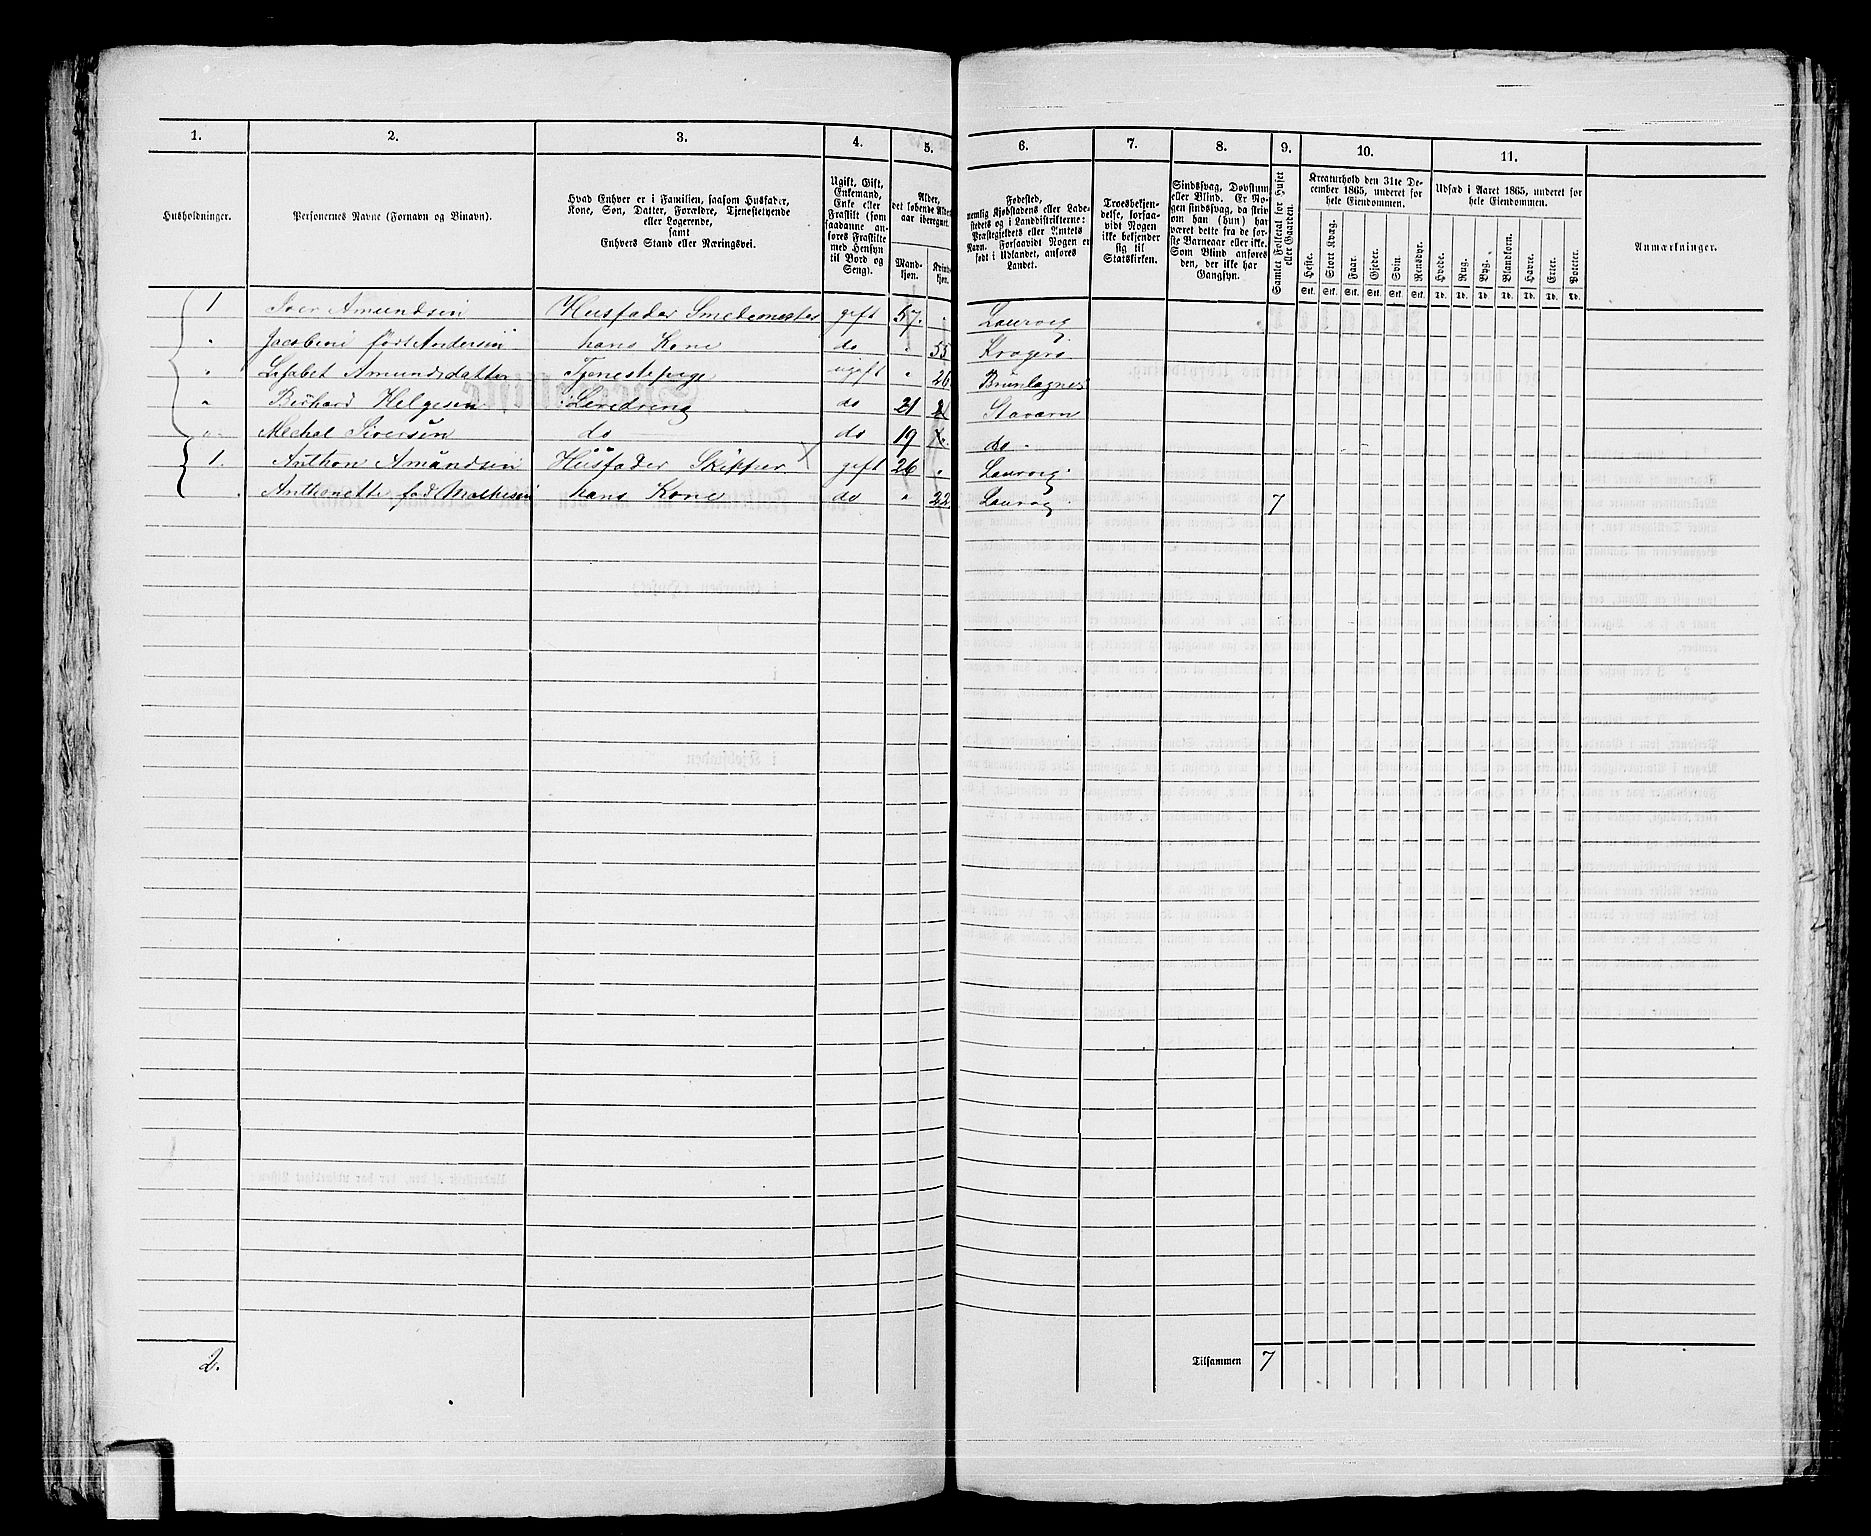 1. 2. 3. 4. 5. 6. 7. 8. 9. 10. 11.
Husholdninger.
Personernes Navne (Fornavn og Binavn).
Hvad Enhver er i Familien, saasom Husfader,
Kone, Søn, Datter, Forældre, Tjenestetyende
eller Logerende,
samt
Enhvers Stand eller Næringsvei.
Ugift, Gift,
Enkemand,
Enke eller
Fraskilt (som
saadanne an-
føres Fraskilte
med Hensyn
til Bord og
Seng).
Alder,
det løbende Alders-
aar iberegnet.
Mand-
kjøn.
Kvinde-
kjøn.
Fødested,
nemlig Kjøbstadens eller Lade-
stedets og i Landdistrikterne:
Præstegjeldets eller Amtets
Navn. Forsaavidt Nogen er
født i Udlandet, anføres
Landet.
Troesbekjen-
delse, forsaa-
vidt Nogen
ikke bekjender
sig til
Statskirken.
Sindssvag, Døvstum
eller Blind. Er No-
gen sindssvag, da skriv
om han (hun) har
været dette fra de før-
ste Barneaar eller ikke.
Som Blind anføres
den, der ikke har
Gangsyn.
Samlet Folketal for Huset
eller Gaarden.
Kreaturhold den 31te De-
cember 1865, underet for
hele Eiendommen.
Heste. Stort Kvæg. Faar. Gjeder. Svin. Rensdyr.
Stk. Stk. Stk. Stk. Stk. Stk.
Udsæd i Aaret 1865, underet for
hele Eiendommen.
Hvede. Rug. Byg. Blandkorn. Havre. Erter. Poteter.
Td. Td. Td. Td. Td. Td. Td.
Anmærkninger.
1 Iver Amundsen Husfader Smedemester gift 57. " Laurvig
" Jacobine født Andersen hans Kone do " 55 Kragerø
" Lisabet Amundsdatter Tjenestepige ugift " 26 Brunlagnes
" Helgesen do 21 Stavern
" Mechal Siversen do do 19 do
1. Anthon Amundsen Husfader Skipper gift 26 " Laurvig
" Anthonette fød Mathisen hans Kone do " 22 Laurvig 7
2.
Tilsammen 7